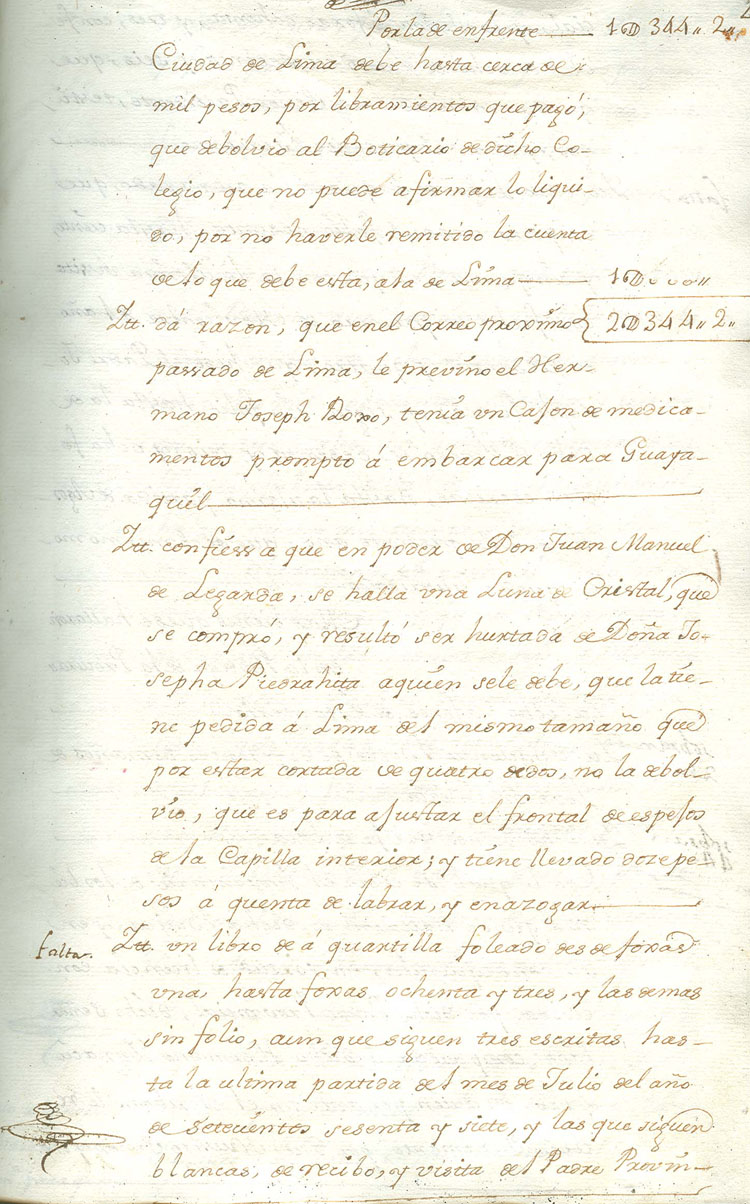 Por la de enfrente 1D344,, 2,,
Ciudad de Lima debe hasta cerca de
mil pesos, por libramientos que pagó,
que debolvio al Boticario de dicho Co-
legio, que no puede afirmar lo liqui-
do, por no haverle remitido la cuenta
de lo que debe esta, a la de Lima 1D000,,
Itt. dá razon, que en el Correo proximo 2D344,, 2,,
passado de Lima, le previno el Her-
mano Joseph Roxo, tenia un Cajon de medica-
mentos prompto á embarcar para Guaya-
quil
Itt. confiessa que en poder de Don Juan Manuel
de Legarda, se halla una Luna de Cristal, que
se compró, y resultó ser hurtada de Doña Jo-
sepha Piedrahita a quien se le debe, que la tie-
ne pedida á Lima del mismo tamaño que
por estar cortada de quatro dedos, no la debol-
vio, que es para ajustar el frontal de espejos
de la Capilla interior; y tiene llevado doze pe-
sos á quenta de labrar, y enazogar
falta. Itt. un libro de á quartilla foleado desde foxas
una, hasta foxas ochenta y tres, y las demas
sin folio, aun que siguen tres escritas has-
ta la ultima partida del mes de Julio del año
de setecientos sesenta y siete, y las que siguen
blancas, de recibo, y visita del Padre Provin-